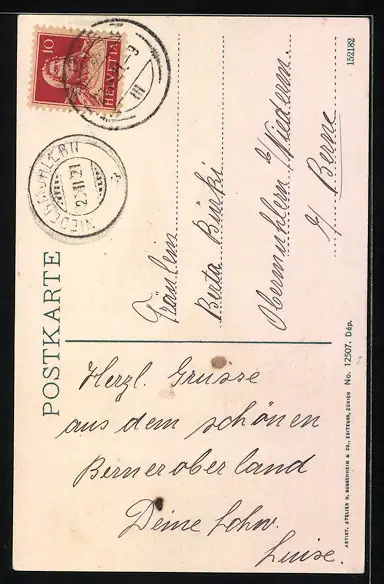 POSTKARTE
10
HELVETIA
NIEDERMUHLERN
23.III.21
III
152182
Fräulein
Berta Bürki
Obermuhlern b/Niederm.
b/ Berne
Herzl. Grüsse
aus dem schönen
Berneroberland
Deine Schw.
Luise.
ARTIST. ATELIER H. GUGGENHEIM & CO., EDITEURS, ZÜRICH No. 12507. Dép.